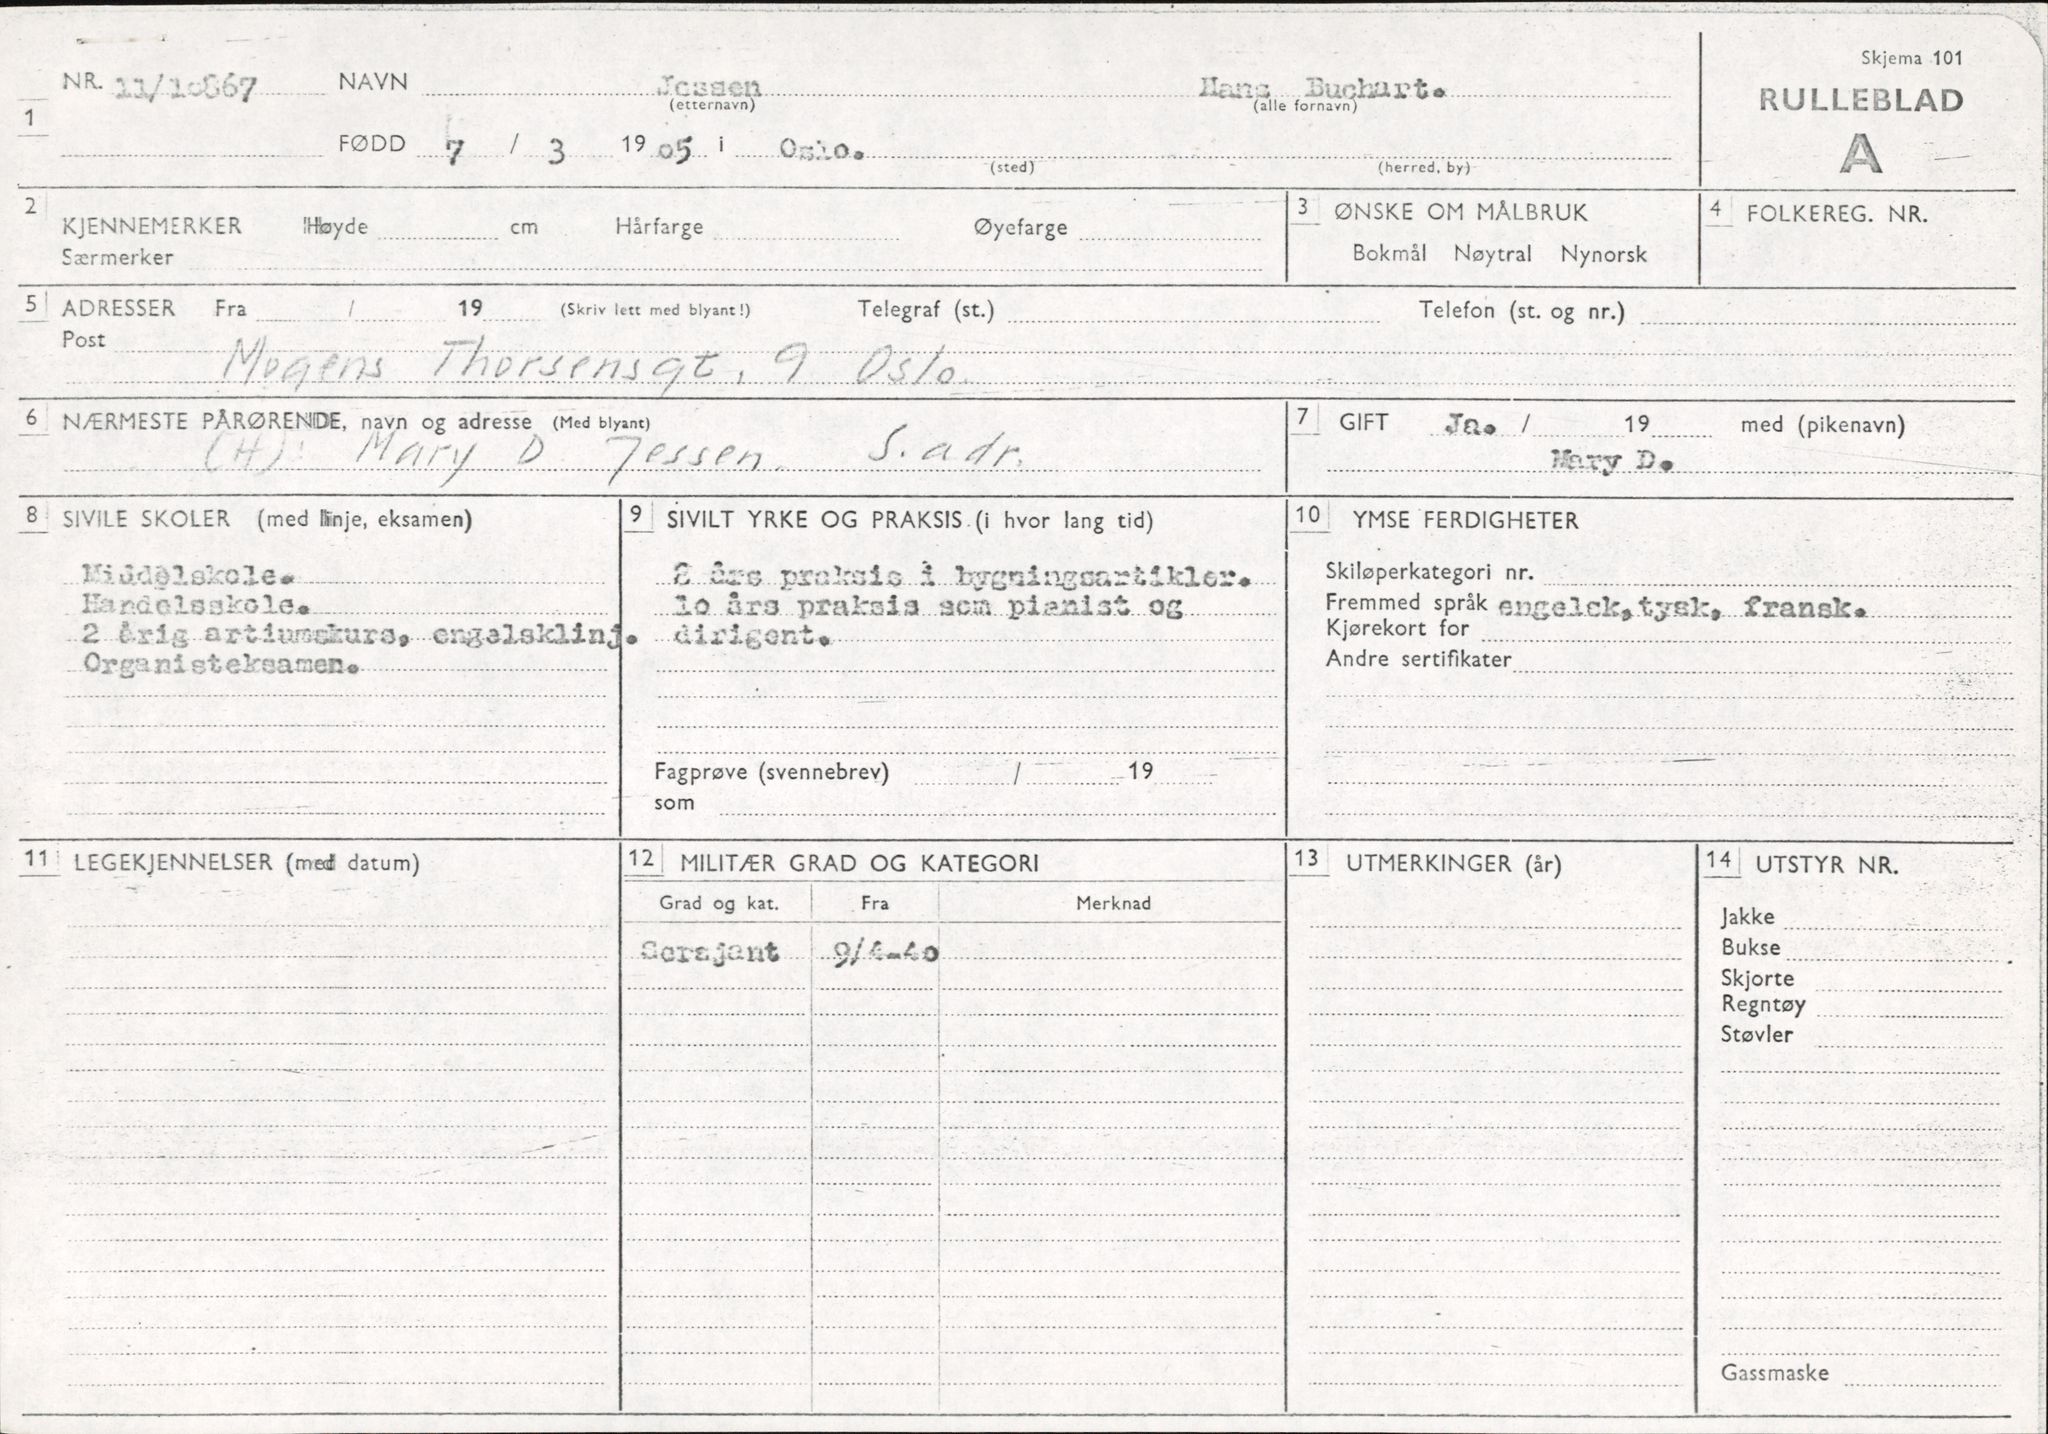 Skjema 101
NR. 11/10867 NAVN Jessen Hans Buchart.
(etternavn) (alle fornavn)
RULLEBLAD
A
1
FØDD 7 / 3 1905 i Oslo.
(sted) (herred, by)
2 KJENNEMERKER Høyde cm Hårfarge Øyefarge
Særmerker
3 ØNSKE OM MÅLBRUK
Bokmål Nøytral Nynorsk
4 FOLKEREG. NR.
5 ADRESSER Fra / 19 (Skriv lett med blyant!) Telegraf (st.) Telefon (st. og nr.)
Post
Mogens Thorsensgt. 9 Oslo.
6 NÆRMESTE PÅRØRENDE, navn og adresse (Med blyant)
(H): Mary D Jessen. S. adr.
7 GIFT Ja. / 19 med (pikenavn)
Mary D.
8 SIVILE SKOLER (med linje, eksamen)
Middelskole.
Handelsskole.
2 årig artiumskurs, engelsklinj.
Organisteksamen.
9 SIVILT YRKE OG PRAKSIS (i hvor lang tid)
8 års praksis i bygningsartikler.
10 års praksis som pianist og
dirigent.
Fagprøve (svennebrev) / 19
som
10 YMSE FERDIGHETER
Skiløperkategori nr.
Fremmed språk engelsk, tysk, fransk.
Kjørekort for
Andre sertifikater
11 LEGEKJENNELSER (med datum)
12 MILITÆR GRAD OG KATEGORI
Grad og kat. Fra Merknad
Sersjant 9/4-40
13 UTMERKINGER (år)
14 UTSTYR NR.
Jakke
Bukse
Skjorte
Regntøy
Støvler
Gassmaske